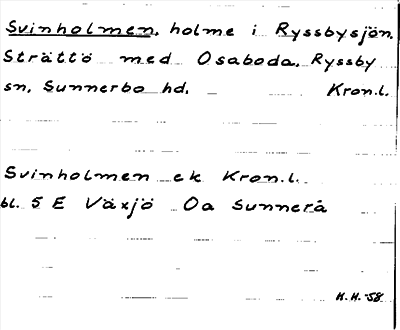 Svinholmen, holme i Ryssbysjön,
Strättö med Osaboda, Ryssby
sn, Sunnerbo hd. Kron.l.
Svinholmen ek Kron.l.
bl. 5 E Växjö Oa Sunnerå
H.H.-58